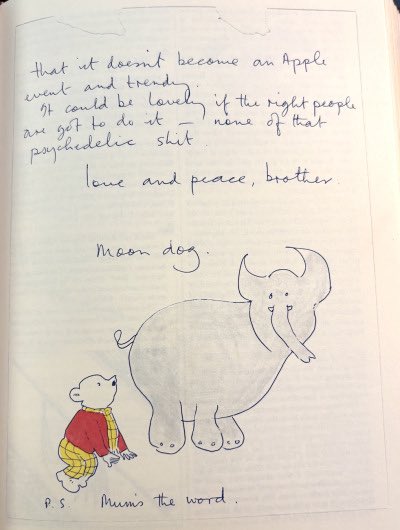 that it doesn't become an Apple
event and trendy.
It could be lovely if the right people
are got to do it – none of that
psychedelic shit.
love and peace, brother.
Moon dog.
P.S. Mum's the word.